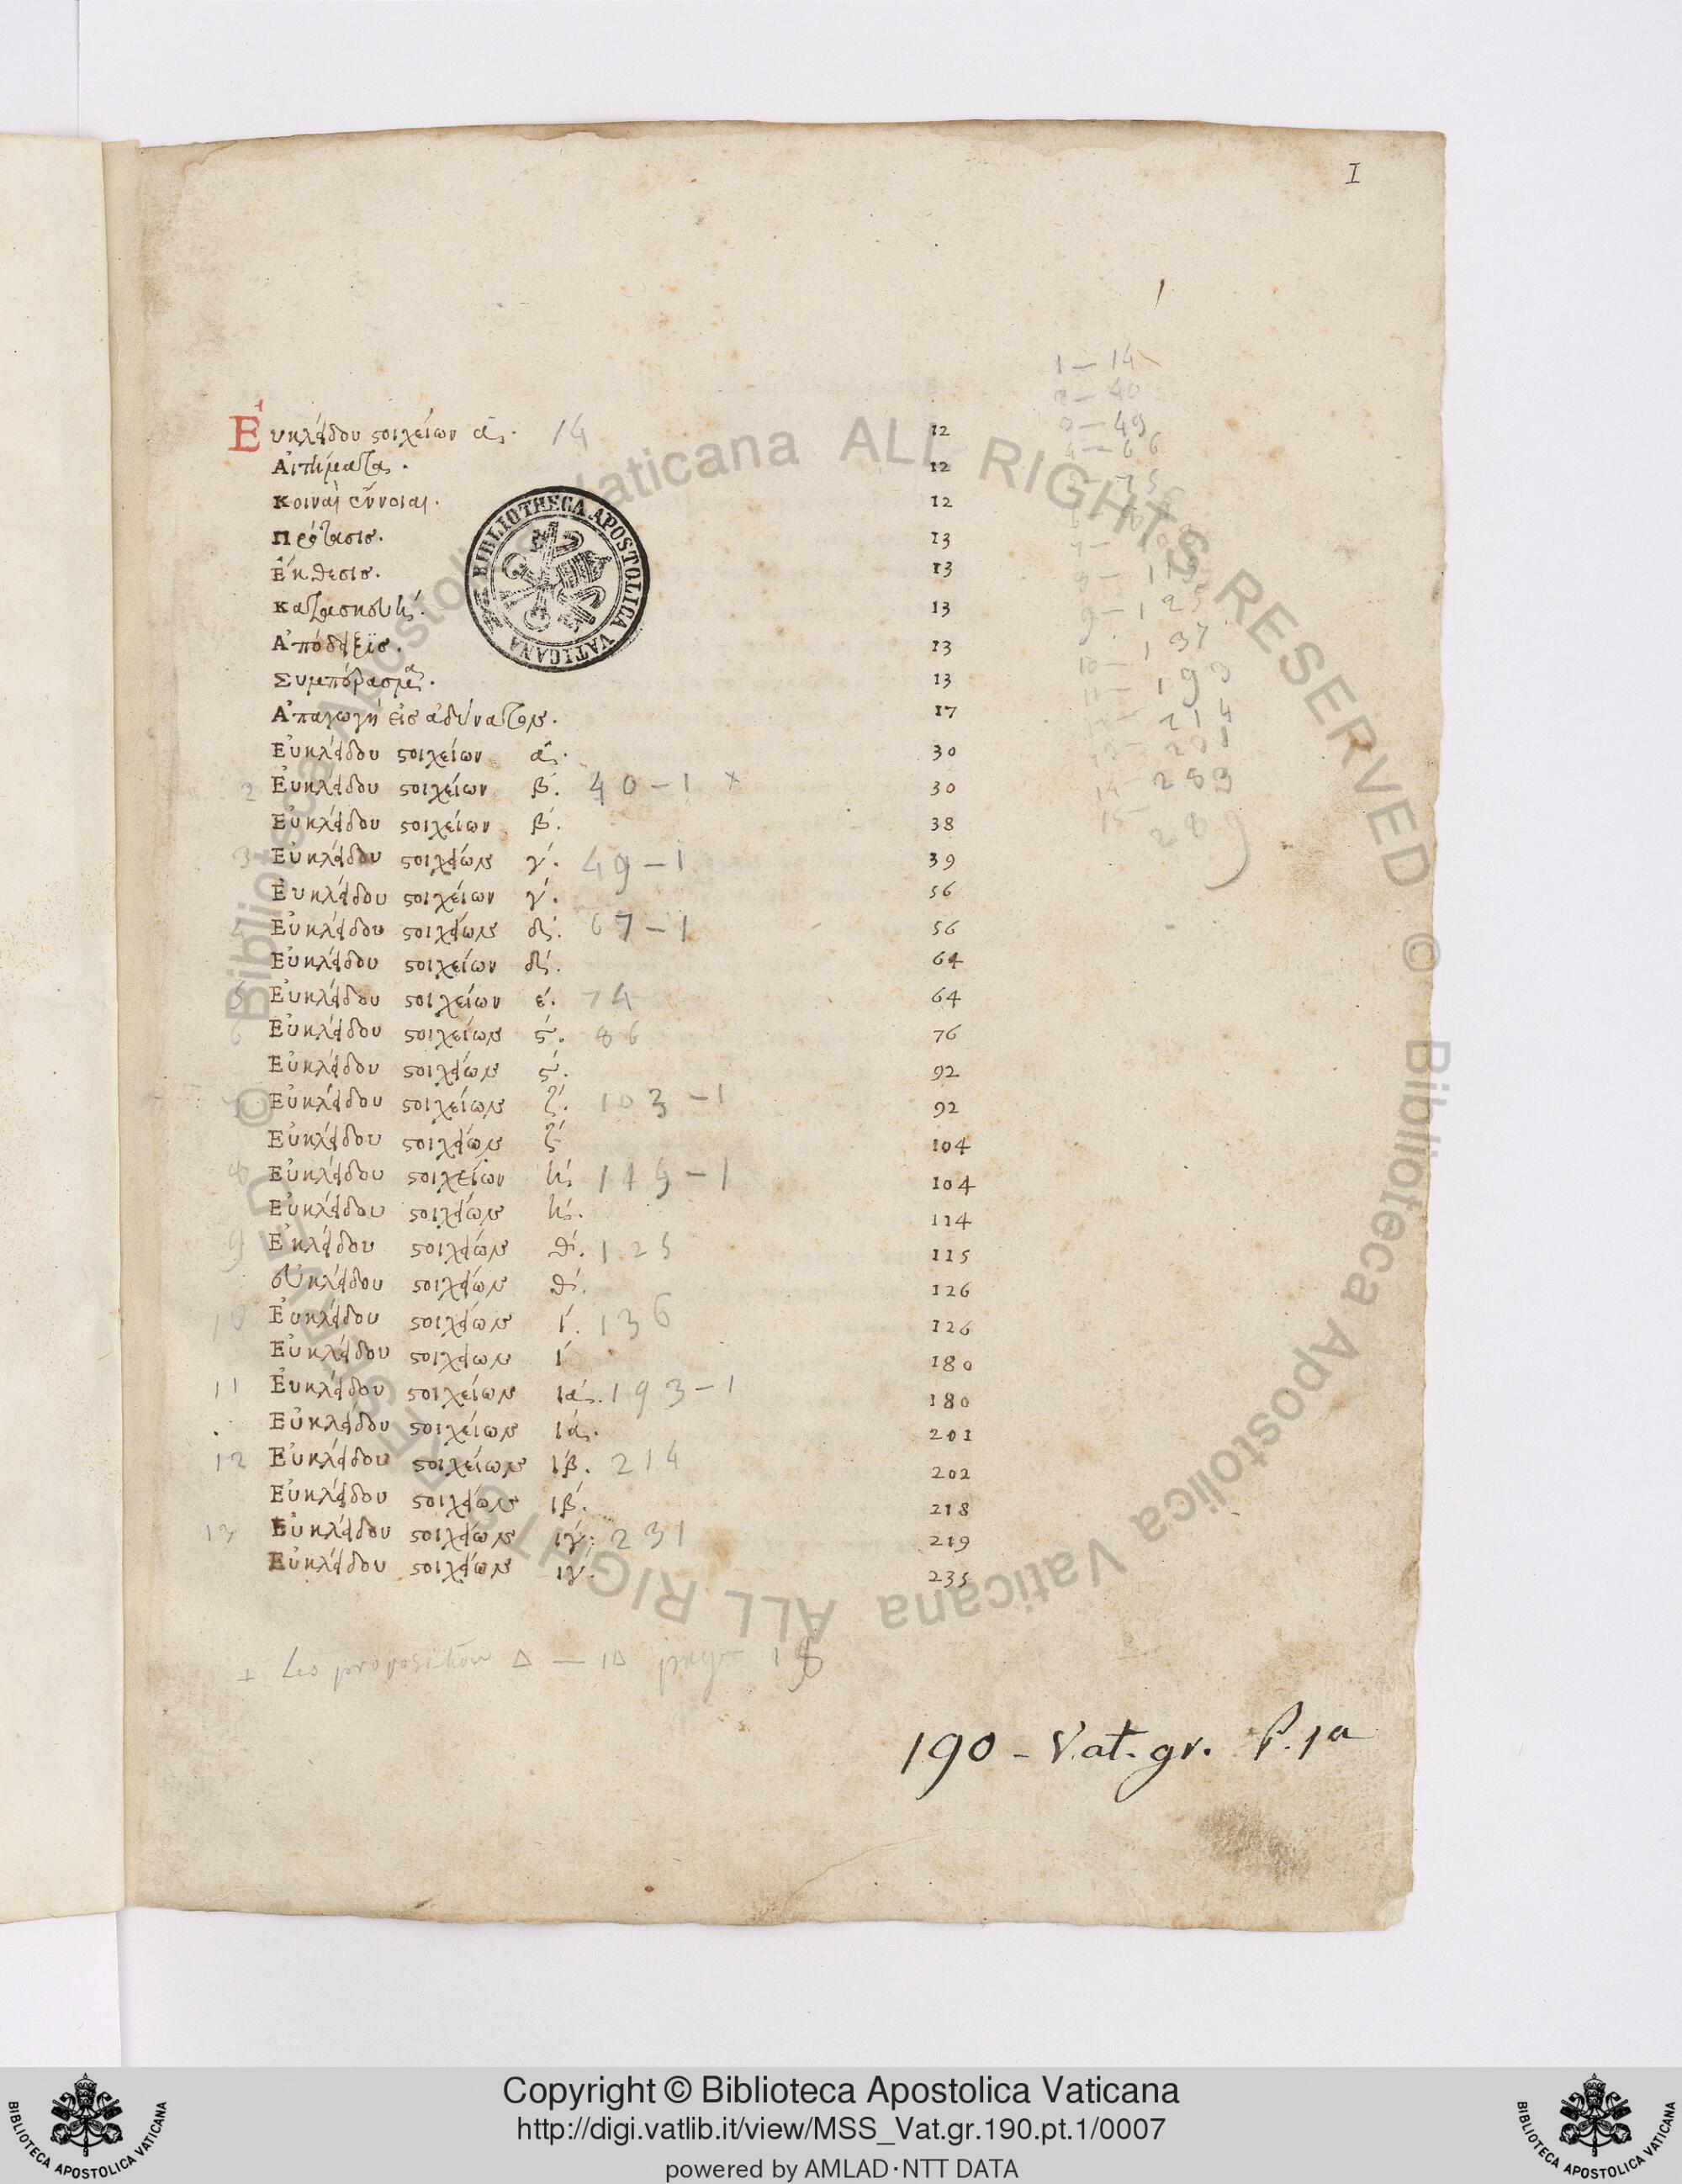 I
1 — 14
2 — 40
3 — 49
4 — 66
Εὐκλείδου στοιχείων α΄. 14 12
Αἰτήματα. 12
Κοιναὶ ἔννοιαι. 12
Πρότασις. 13
Ἔκθεσις. 13
Κατασκευή. 13
Ἀπόδειξις. 13
Συμπέρασμα. 13
Ἀπαγωγὴ εἰς ἀδύνατον. 17
Εὐκλείδου στοιχείων α΄. 30
2 Εὐκλείδου στοιχείων β΄. 40 – 1 x 30
Εὐκλείδου στοιχείων β΄. 38
3 Εὐκλείδου στοιχείων γ΄. 49 – 1 39
Εὐκλείδου στοιχείων γ΄. 56
Εὐκλείδου στοιχείων δ΄. 67 – 1 56
Εὐκλείδου στοιχείων δ΄. 64
5 Εὐκλείδου στοιχείων ε΄. 74 64
6 Εὐκλείδου στοιχείων ϛ΄. 86 76
Εὐκλείδου στοιχείων ϛ΄. 92
7 Εὐκλείδου στοιχείων ζ΄. 103 – 1 92
Εὐκλείδου στοιχείων ζ΄ 104
8 Εὐκλείδου στοιχείων η΄. 115 – 1 104
Εὐκλείδου στοιχείων η΄. 114
9 Εὐκλείδου στοιχείων θ΄. 125 115
Εὐκλείδου στοιχείων θ΄. 126
10 Εὐκλείδου στοιχείων ι΄. 136 126
Εὐκλείδου στοιχείων ι΄ 180
11 Εὐκλείδου στοιχείων ια΄. 193 – 1 180
Εὐκλείδου στοιχείων ια΄. 201
12 Εὐκλείδου στοιχείων ιβ΄. 214 202
Εὐκλείδου στοιχείων ιβ΄. 218
13 Εὐκλείδου στοιχείων ιγ΄. 231 219
Εὐκλείδου στοιχείων ιγ΄. 235
9 – 125
10 – 137
193
214
231
14 – 253
15 – 289
BIBLIOTHECA APOSTOLICA VATICANA
190 - Vat. gr. P. 1a
© Biblioteca Apostolica Vaticana ALL RIGHTS RESERVED © Biblioteca Apostolica Vaticana ALL RIGHTS RESERVED
Copyright © Biblioteca Apostolica Vaticana
http://digi.vatlib.it/view/MSS_Vat.gr.190.pt.1/0007
powered by AMLAD·NTT DATA
BIBLIOTECA APOSTOLICA VATICANA
BIBLIOTECA APOSTOLICA VATICANA